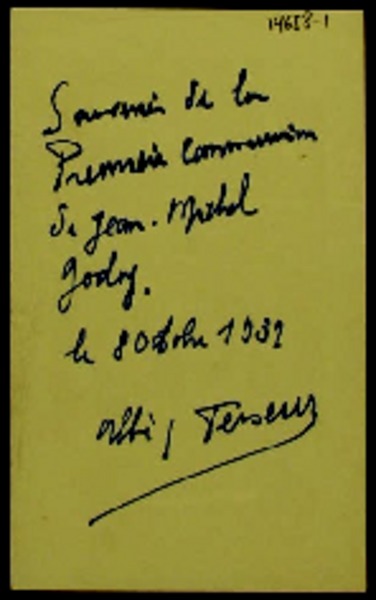 14618-1
Souvenir de la
Première Communion
de Jean-Michel
Godoy.
le 8 Octobre 1939